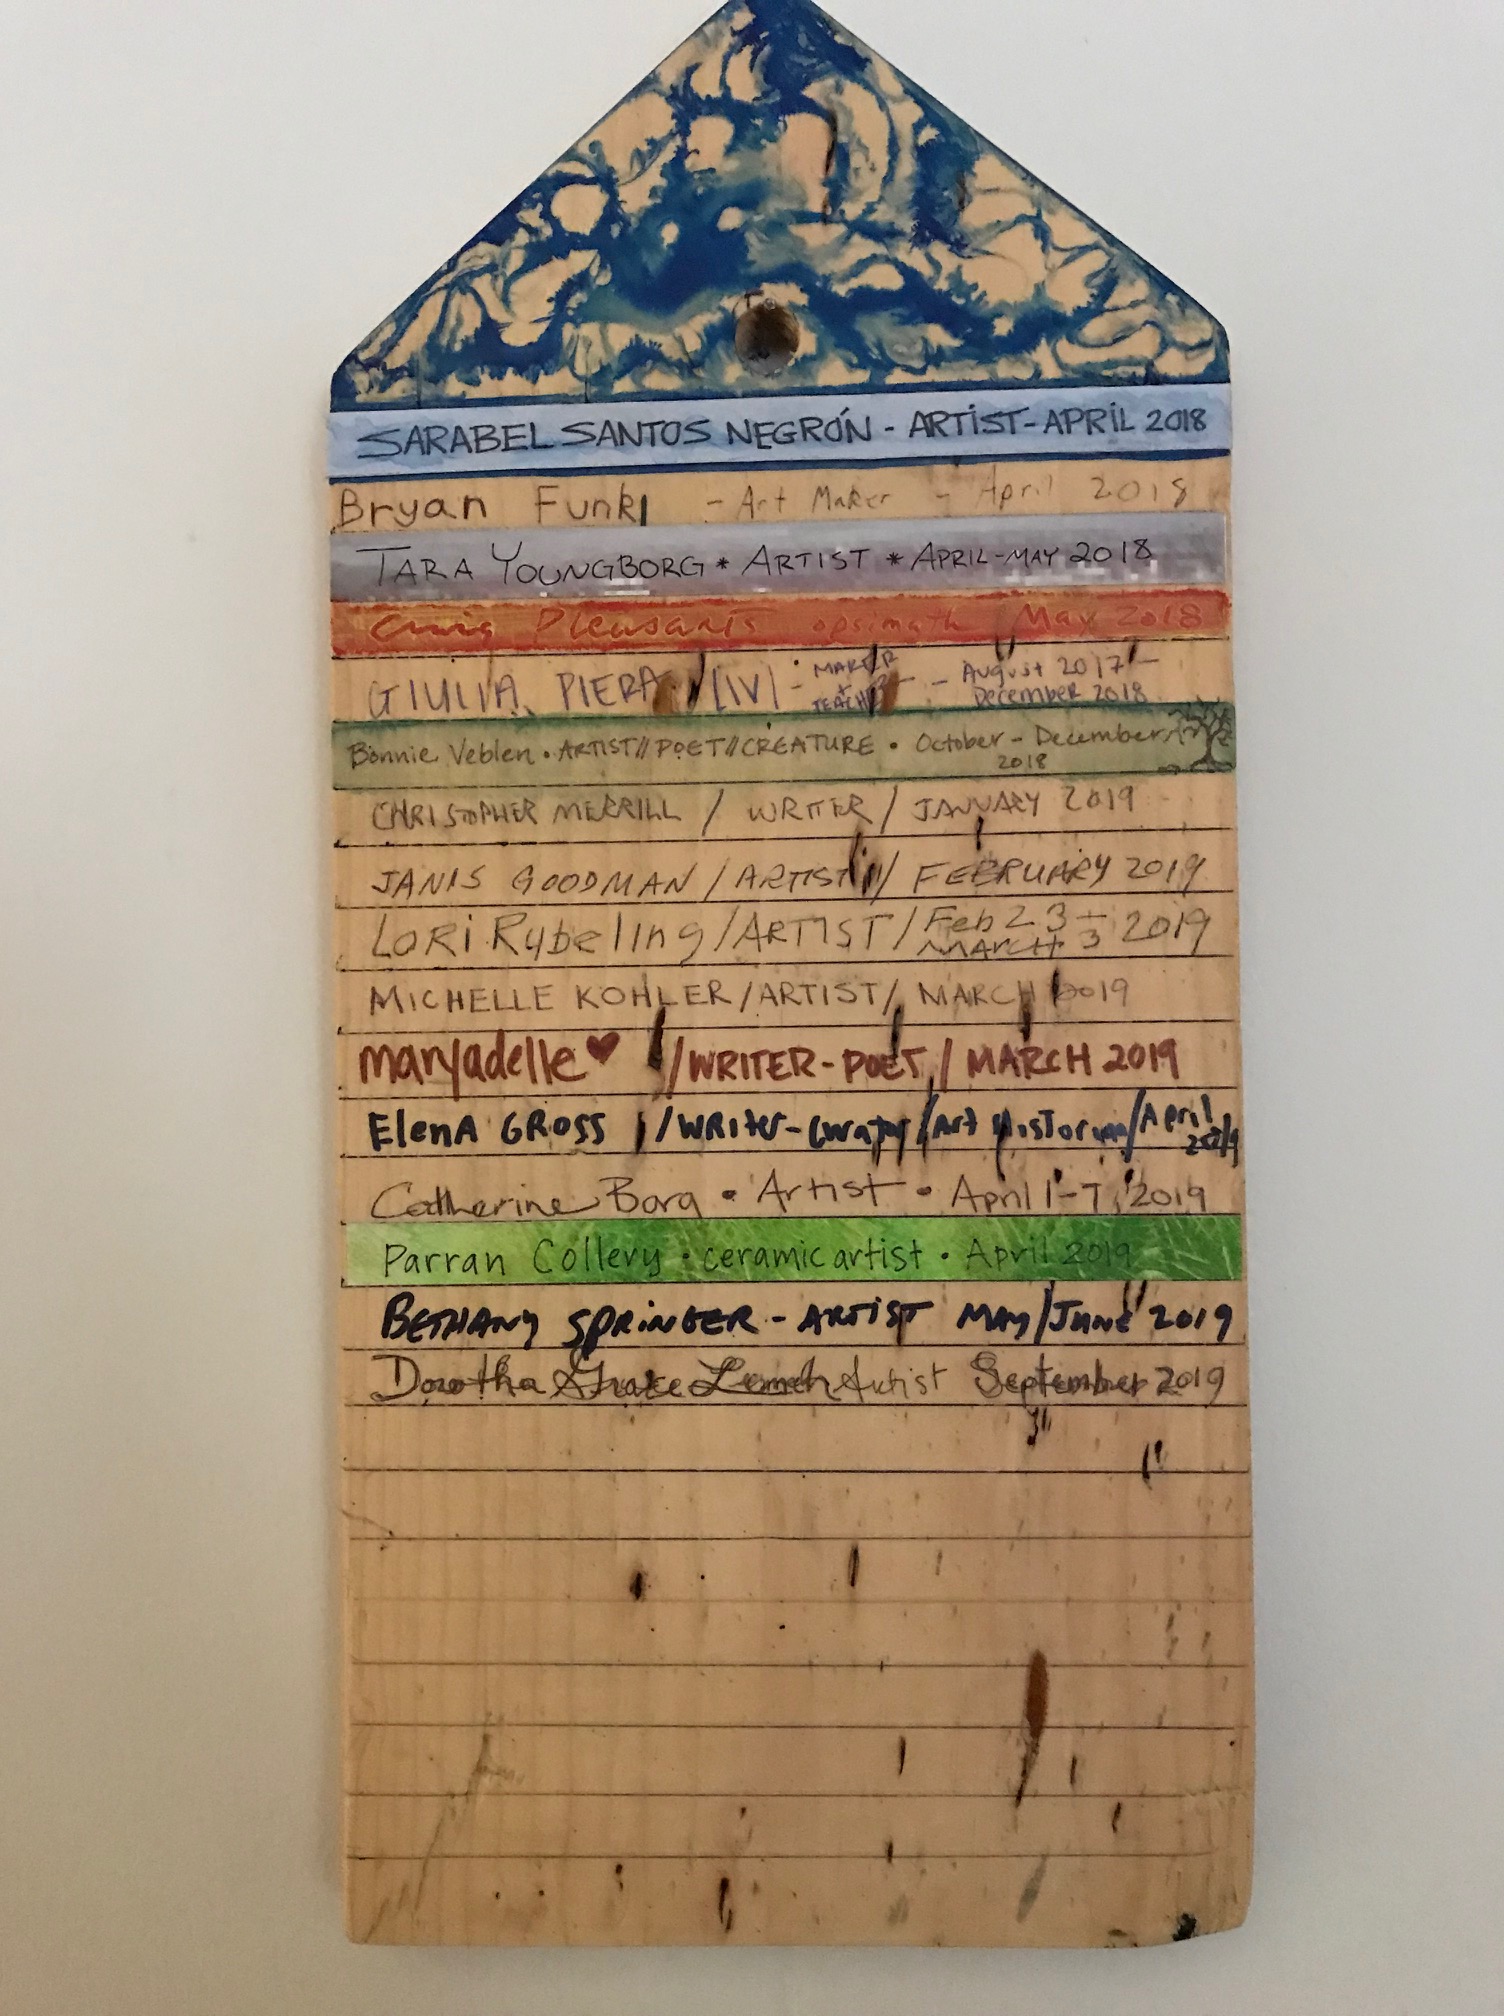 SARABEL SANTOS NEGRÓN - ARTIST - APRIL 2018
Bryan Funk - Art Maker - April 2018
TARA YOUNGBORG * ARTIST * APRIL-MAY 2018
Craig Pleasants opsimath May 2018
GIULIA PIERA [IV] - MAKER + TEACHER - August 2017 - December 2018
Bonnie Veblen • ARTIST//POET//CREATURE • October - December 2018
CHRISTOPHER MERRILL / WRITER / JANUARY 2019
JANIS GOODMAN / ARTIST / FEBRUARY 2019
LORI Rybeling / ARTIST / Feb 23 - MARCH 3 2019
MICHELLE KOHLER / ARTIST / MARCH 2019
maryadelle ♥ / WRITER-POET / MARCH 2019
ElenA GROSS / WRITER-Curator / Art HISTORIAN / April 2019
Catherine Borg • Artist • April 1-7, 2019
Parran Collery • ceramic artist • April 2019
BETHANY SPRINGER - ARTIST MAY/JUNE 2019
Dorotha Grace Artist September 2019